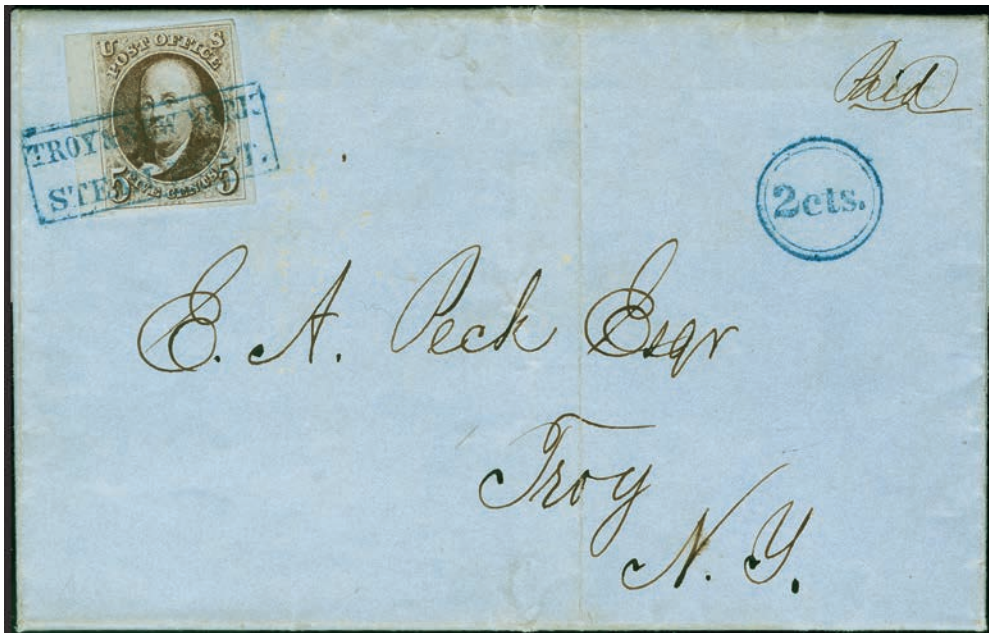 U S
POST OFFICE
5 FIVE CENTS 5
TROY & NEW YORK
STEAM BOAT.
Paid
2cts.
E. A. Peck Esqr
Troy
N. Y.